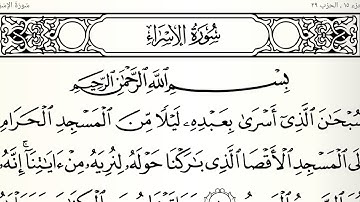 جزء ١٥ ، الحزب ٢٩
سُورَةُ الإس
سُورَةُ الإِسْرَاءِ
بِسْمِ اللَّهِ الرَّحْمَٰنِ الرَّحِيمِ
سُبْحَانَ الَّذِىٓ أَسْرَىٰ بِعَبْدِهِۦ لَيْلًا مِّنَ الْمَسْجِدِ الْحَرَامِ
لَى الْمَسْجِدِ الْأَقْصَا الَّذِى بَارَكْنَا حَوْلَهُۥ لِنُرِيَهُۥ مِنْ ءَايَاتِنَآ ۚ إِنَّهُۥ